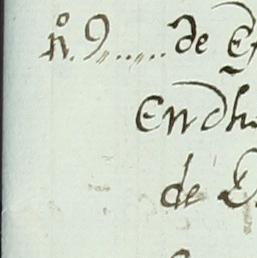 nº. 9,,.....de
Endh
de